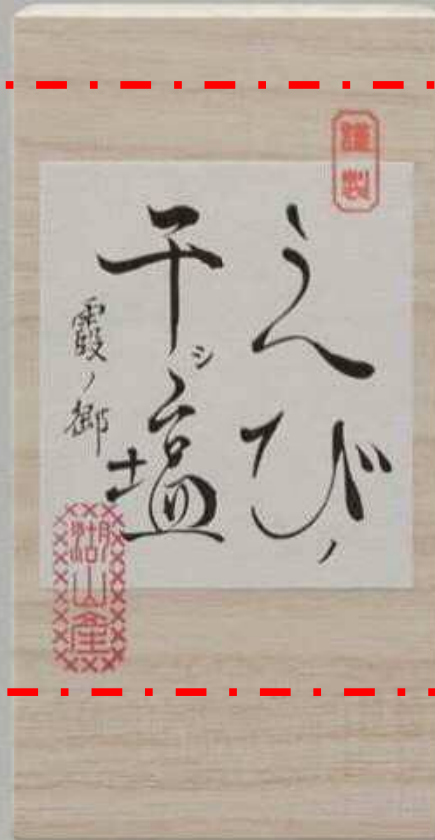 謹製
えびノ
干シ塩
霞ノ郷
湖山産